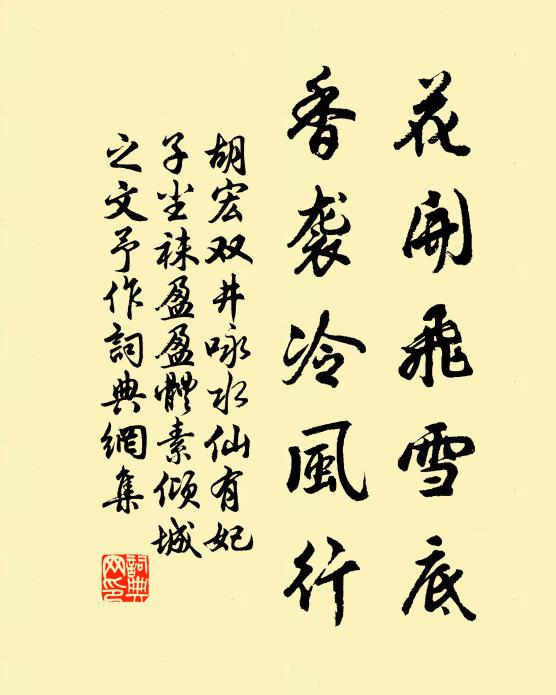 花開飛雪底
香袭冷風行
胡宏双井咏水仙有妃
子坐袜盈盈體素倾城
之文予作詞典網集
詞典网印